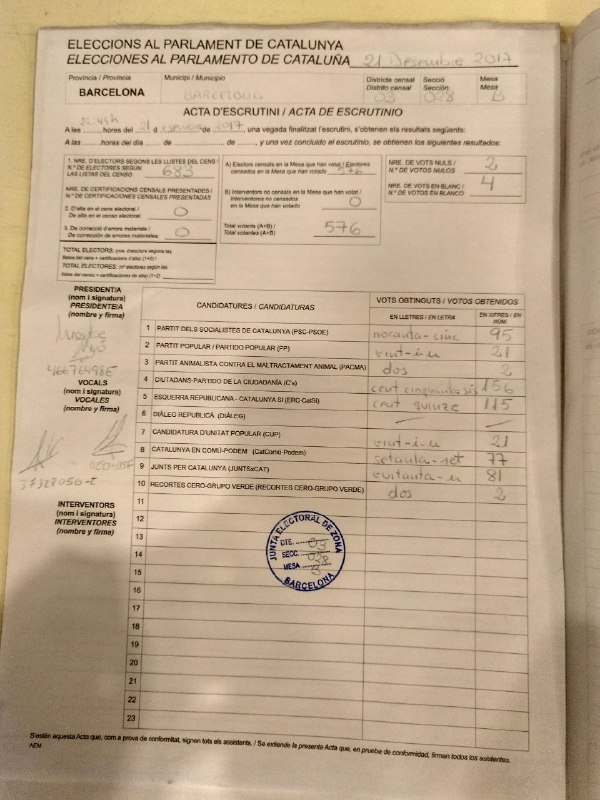 ELECCIONS AL PARLAMENT DE CATALUNYA
ELECCIONES AL PARLAMENTO DE CATALUÑA 21 Desembre 2017
Província / Provincia Municipi / Municipio Districte censal Secció Mesa
Distrito censal Sección Mesa
BARCELONA BARCELONA 03 028 B
ACTA D'ESCRUTINI / ACTA DE ESCRUTINIO
22:45h
A les hores del 21 de 2017, una vegada finalitzat l'escrutini, s'obtenen els resultats següents:
A las hores del día de de , y una vez concluido el escrutinio, se obtienen los siguientes resultados:
1. NRE. D'ELECTORS SEGONS LES LLISTES DEL CENS /
N.º DE ELECTORES SEGÚN
LAS LISTAS DEL CENSO 683
NRE. DE CERTIFICACIONS CENSALS PRESENTADES /
N.º DE CERTIFICACIONES CENSALES PRESENTADAS
2. D'alta en el cens electoral:
De alta en el censo electoral: 0
3. De correcció d'errors materials:
De corrección de errores materiales: 0
TOTAL ELECTORS: (nre. d'electors segons les
llistes del cens + certificacions d'alta) (1+2) /
TOTAL ELECTORES: (nº electores según las
listas del censo + certificaciones de alta) (1+2)
A) Electors censats en la Mesa que han votat / Electores
censados en la Mesa que han votado 576
B) Interventors no censats en la Mesa que han votat /
Interventores no censados
en la Mesa que han votado 0
Total votants (A+B) /
Total votantes (A+B) 576
NRE. DE VOTS NULS /
N.º DE VOTOS NULOS 2
NRE. DE VOTS EN BLANC /
N.º DE VOTOS EN BLANCO 4
PRESIDENT/A
(nom i signatura)
PRESIDENTE/A
(nombre y firma)
46676498E
VOCALS
(nom i signatura)
VOCALES
(nombre y firma)
37328056-E
INTERVENTORS
(nom i signatura)
INTERVENTORES
(nombre y firma)
CANDIDATURES / CANDIDATURAS VOTS OBTINGUTS / VOTOS OBTENIDOS
EN LLETRES / EN LETRA EN XIFRES / EN NÚM.
1 PARTIT DELS SOCIALISTES DE CATALUNYA (PSC-PSOE) noranta-cinc 95
2 PARTIT POPULAR / PARTIDO POPULAR (PP) vint-i-u 21
3 PARTIT ANIMALISTA CONTRA EL MALTRACTAMENT ANIMAL (PACMA) dos 2
4 CIUTADANS-PARTIDO DE LA CIUDADANÍA (C's) cent cinquanta sis 156
5 ESQUERRA REPUBLICANA - CATALUNYA SÍ (ERC-CatSí) cent quinze 115
6 DIÀLEG REPUBLICÀ (DIÀLEG) — —
7 CANDIDATURA D'UNITAT POPULAR (CUP) vint-i-u 21
8 CATALUNYA EN COMÚ-PODEM (CatComú-Podem) setanta-set 77
9 JUNTS PER CATALUNYA (JUNTSxCAT) vuitanta-u 81
10 RECORTES CERO-GRUPO VERDE (RECORTES CERO-GRUPO VERDE) dos 2
11
12
13
14
15
16
17
18
19
20
21
22
23
JUNTA ELECTORAL DE ZONA
DTE. 03
SECC. 028
MESA B
BARCELONA
S'estén aquesta Acta que, com a prova de conformitat, signen tots els assistents. / Se extiende la presente Acta que, en prueba de conformidad, firman todos los asistentes.
AEN